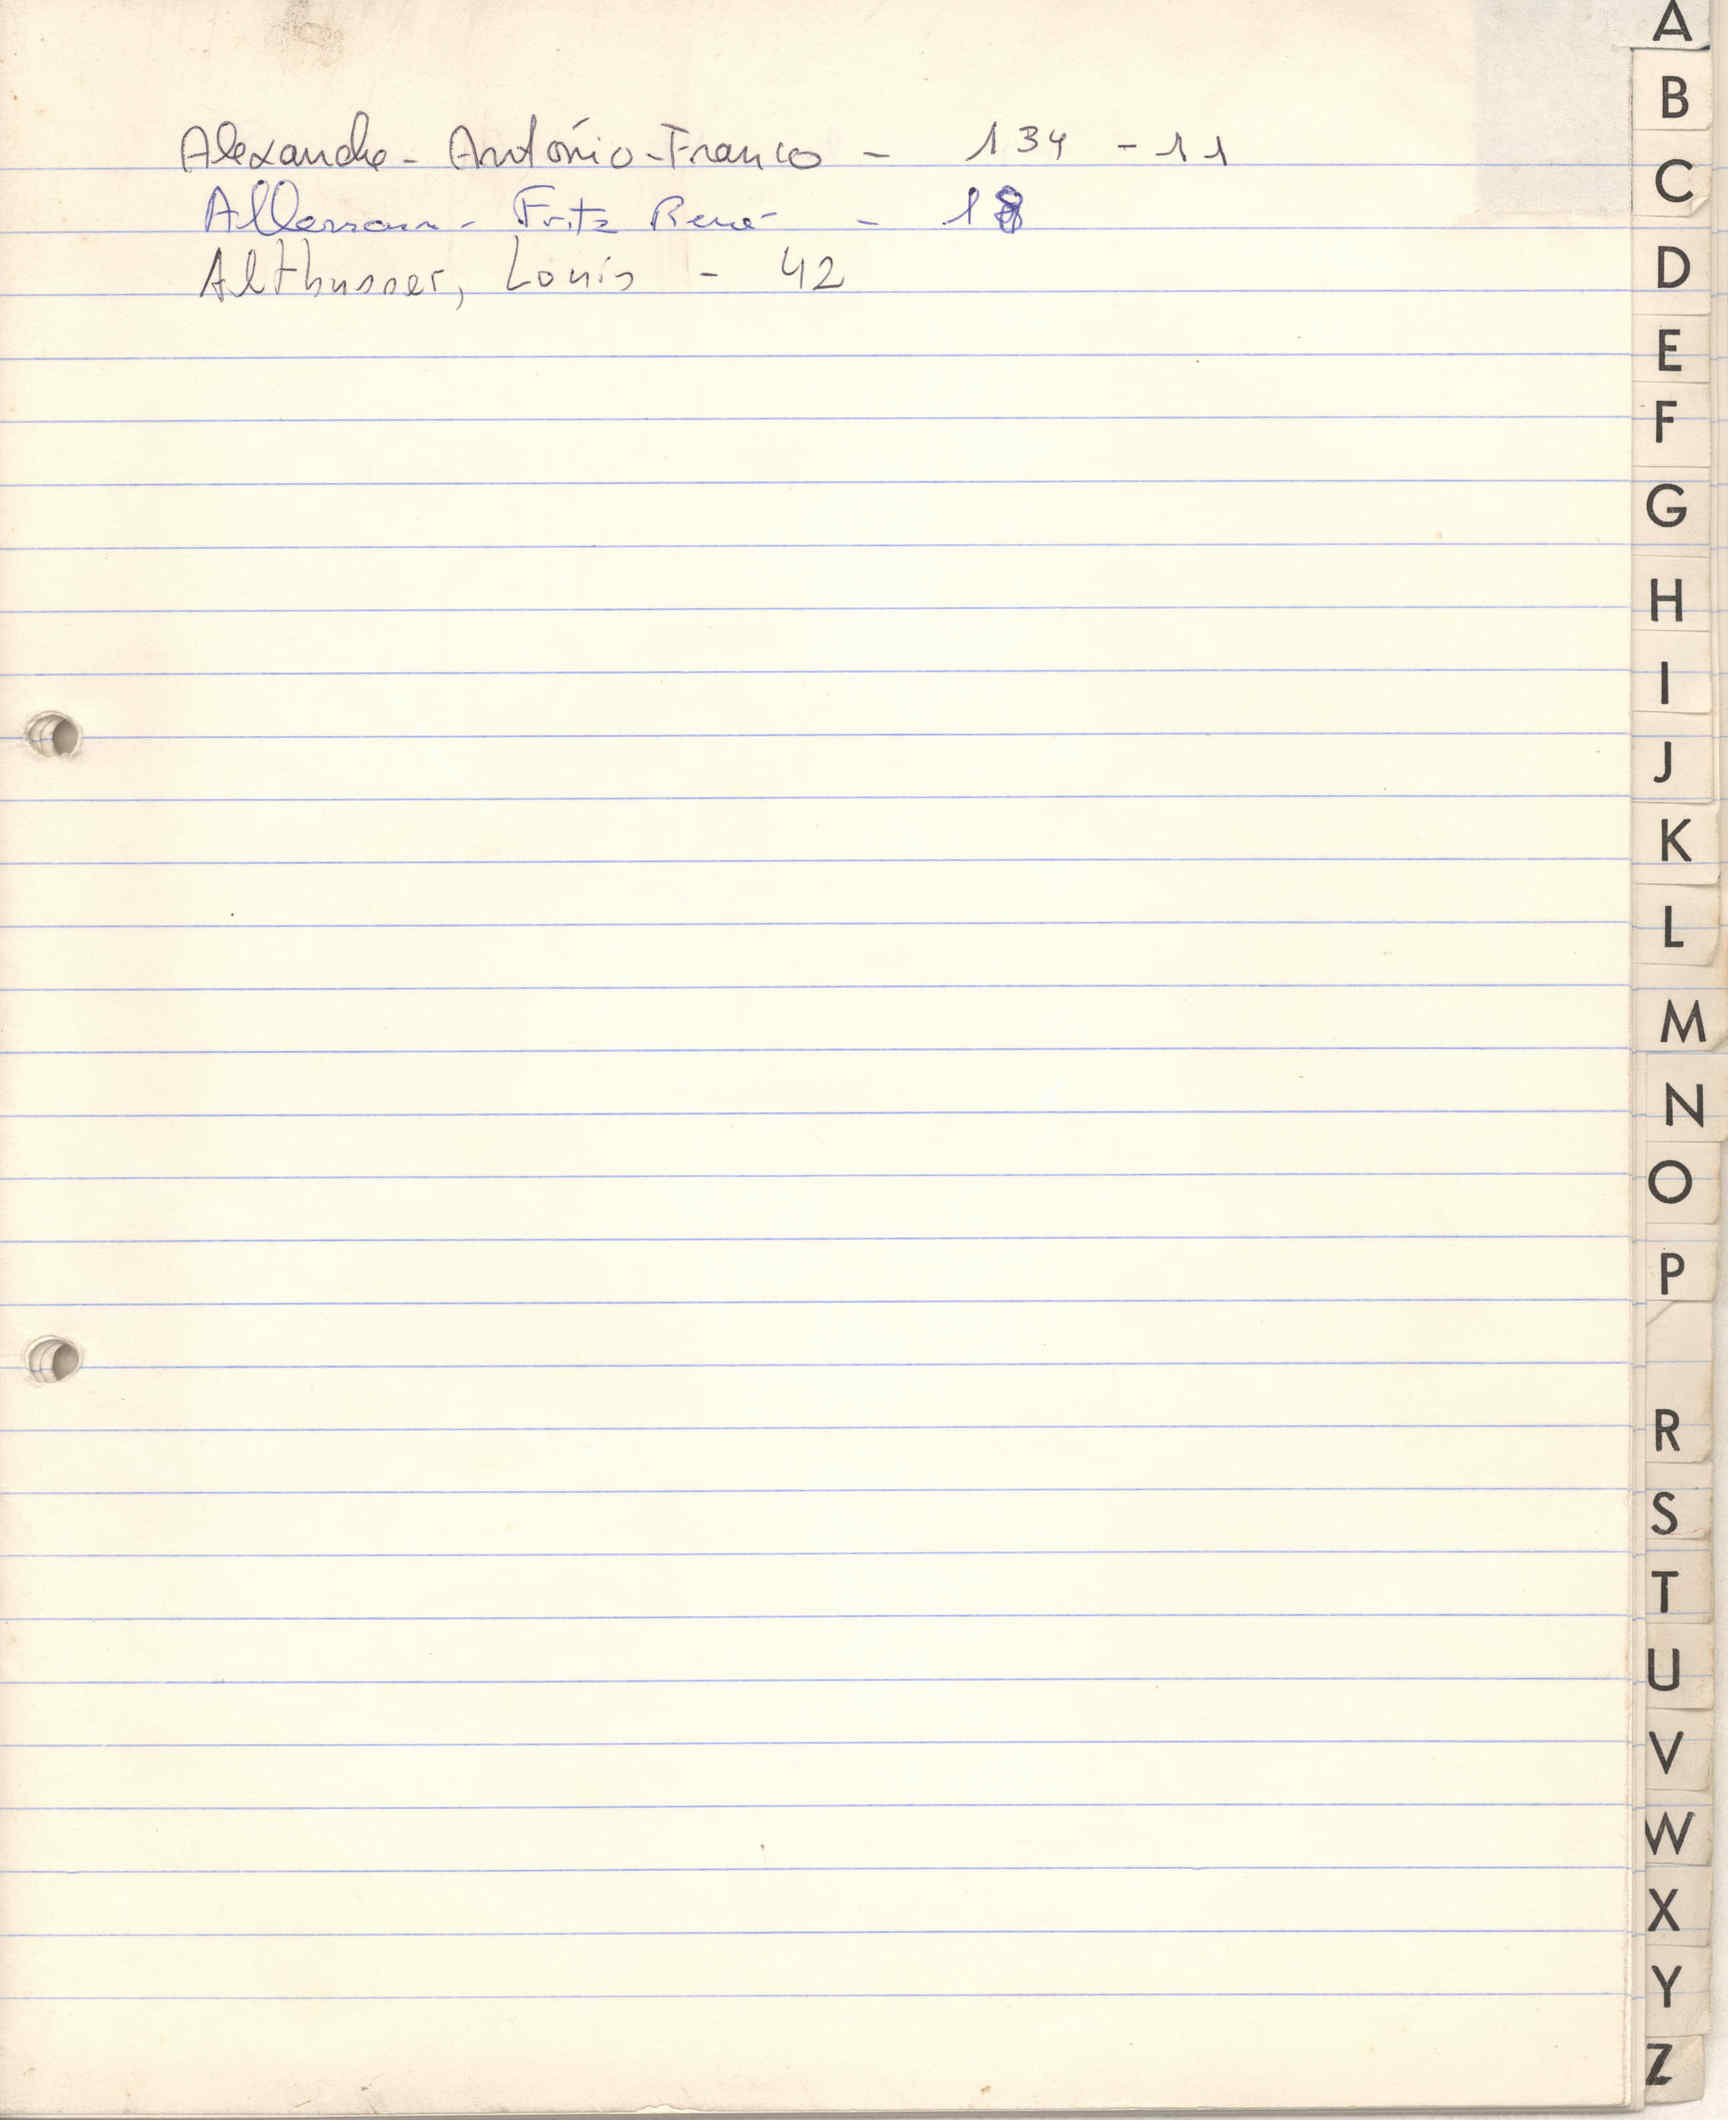 A
B
Alexandre - António-Franco - 134 - 11
C
Allemann - Fritz René - 18
D
Althusser, Louis - 42
E
F
G
H
I
J
K
L
M
N
O
P
R
S
T
U
V
W
X
Y
Z